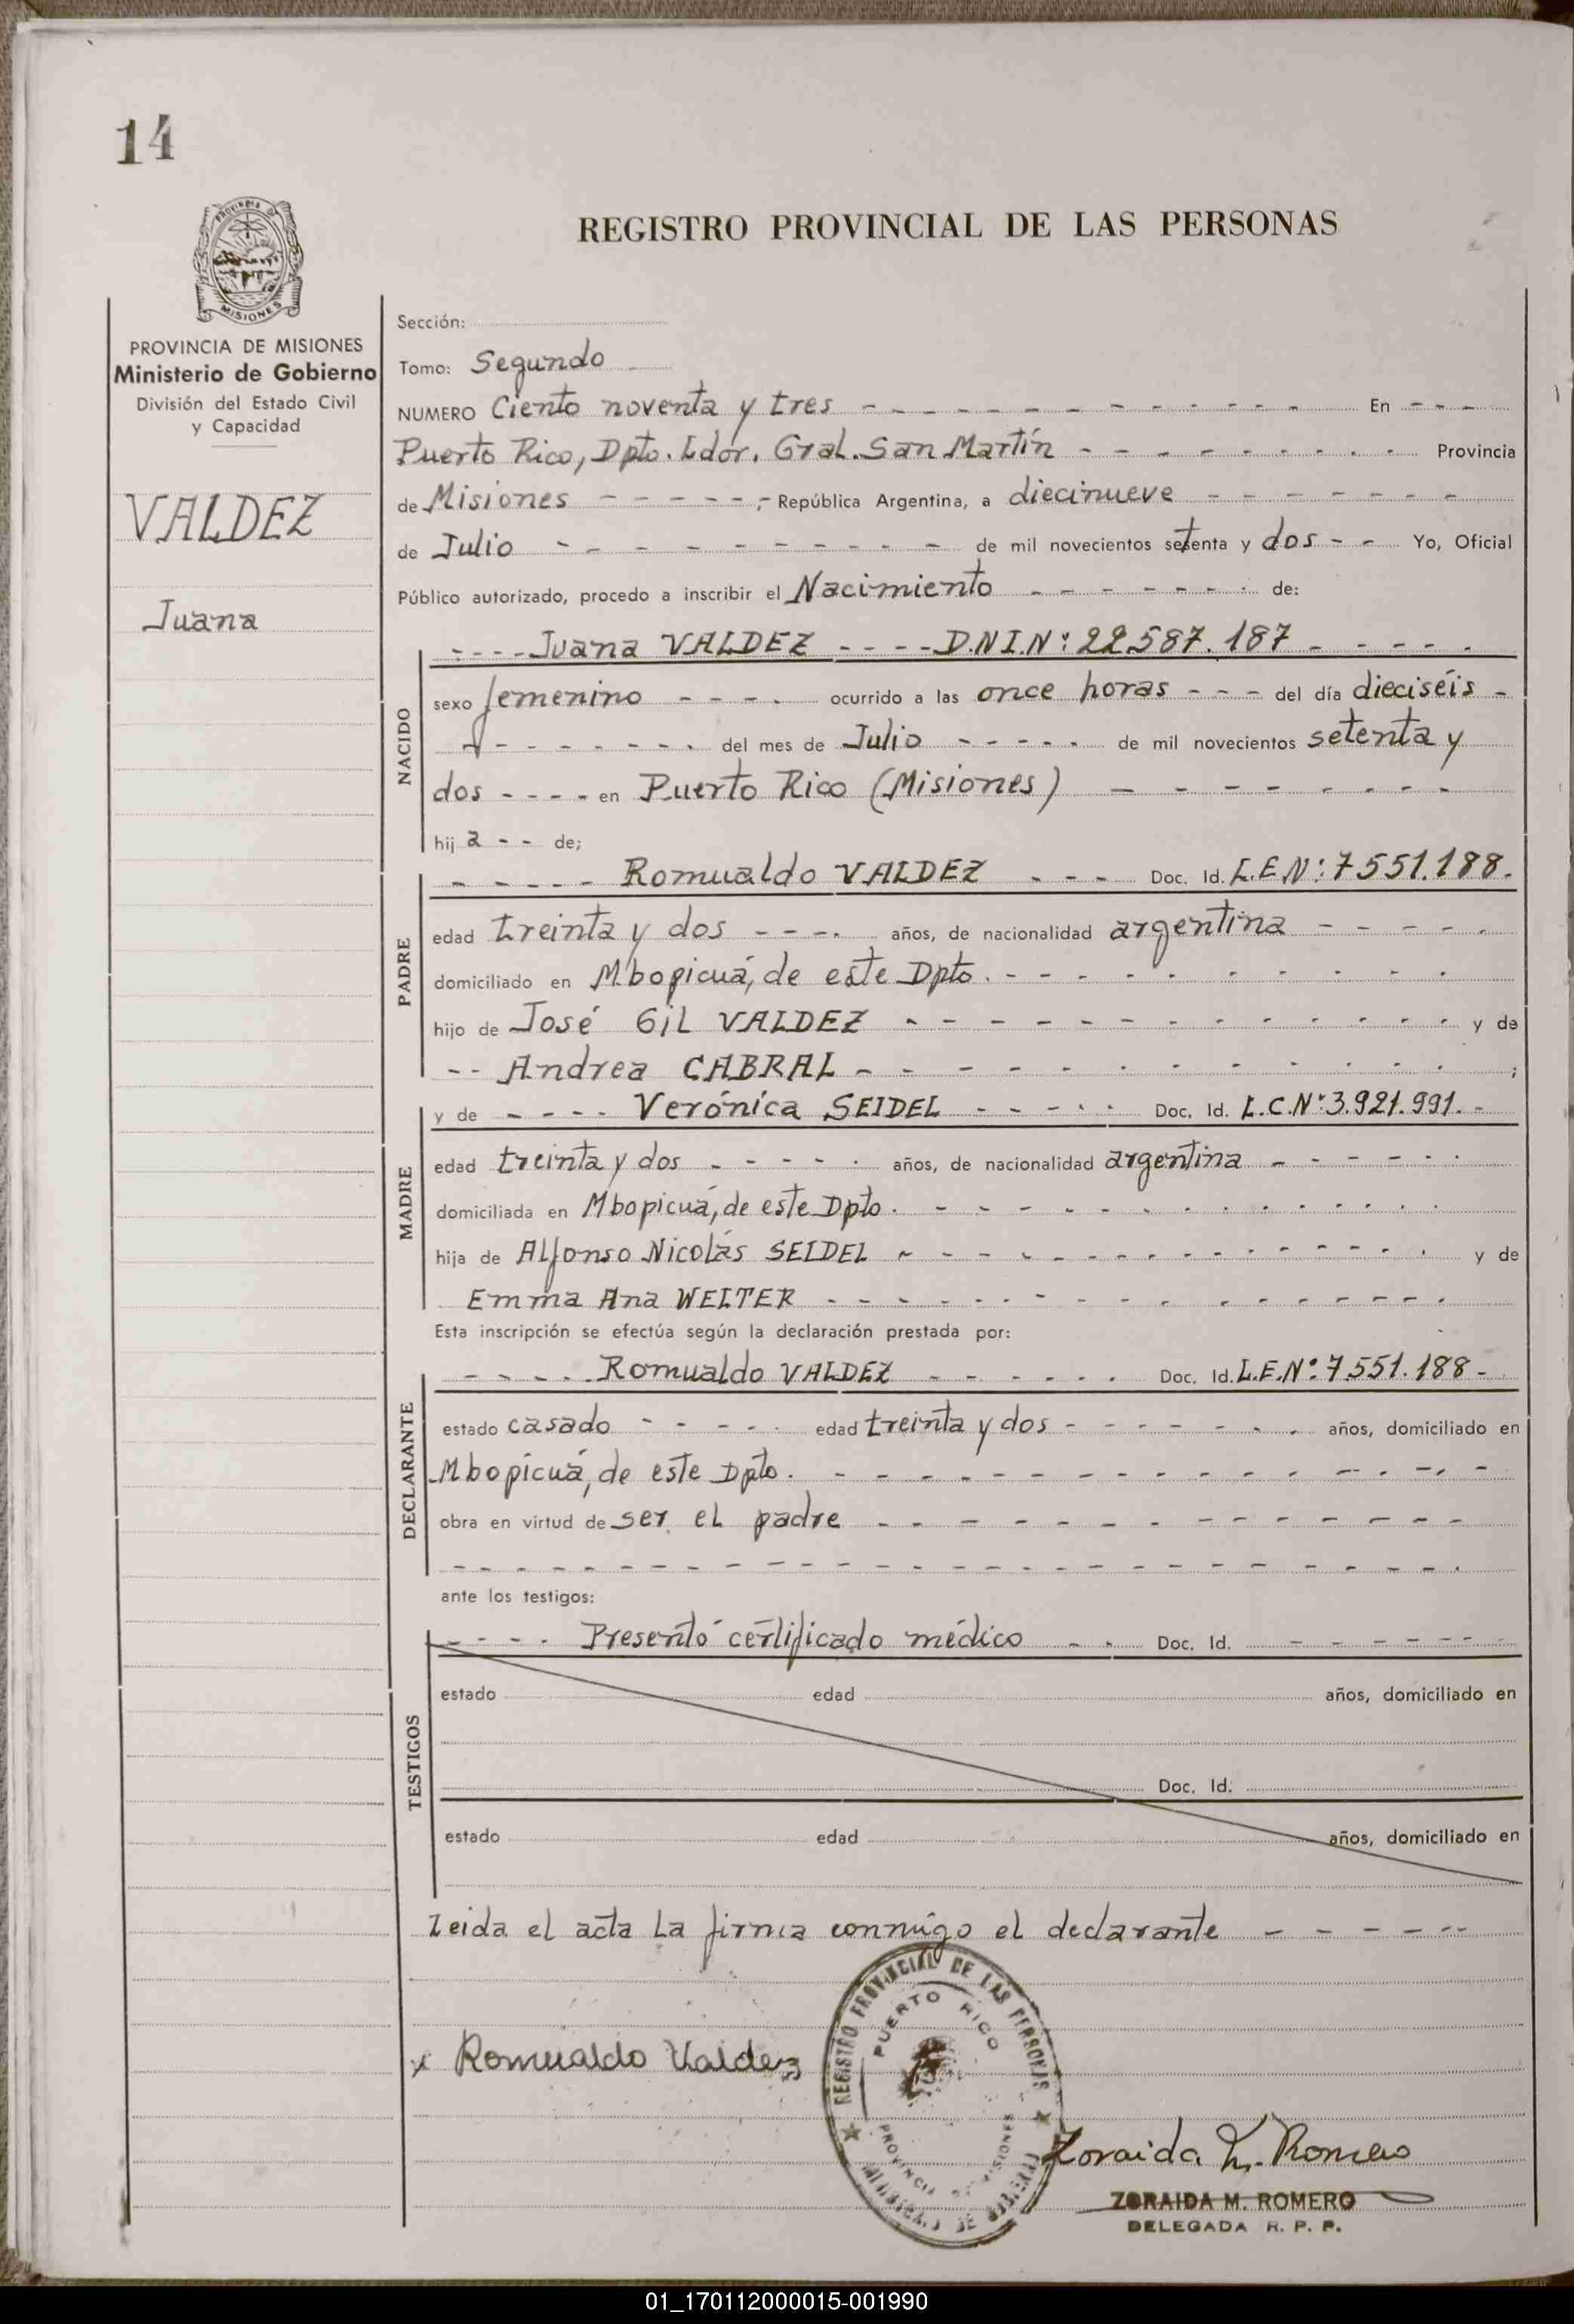 14
PROVINCIA DE
MISIONES
REGISTRO PROVINCIAL DE LAS PERSONAS
PROVINCIA DE MISIONES
Ministerio de Gobierno
División del Estado Civil
y Capacidad
VALDEZ
Juana
Sección:
Tomo: Segundo
NUMERO Ciento noventa y tres - - - - - - - - - - - - En - - - -
Puerto Rico, Dpto. Ldor. Gral. San Martín - - - - - - - - - Provincia
de Misiones - - - - - - República Argentina, a diecinueve - - - - - - -
de Julio - - - - - - - - - de mil novecientos setenta y dos - - Yo, Oficial
Público autorizado, procedo a inscribir el Nacimiento - - - - - - - de:
- - - - Juana VALDEZ - - - - D.N.I.Nº: 22.587.187 - - - - -
NACIDO
sexo femenino - - - - ocurrido a las once horas - - - del día dieciséis -
- - - - - - - - del mes de Julio - - - - - de mil novecientos setenta y
dos - - - - en Puerto Rico (Misiones) - - - - - - - -
hij a - - de;
PADRE
- - - - - Romualdo VALDEZ - - - Doc. Id. L.E.Nº: 7.551.188.
edad treinta y dos - - - - años, de nacionalidad argentina - - - - -
domiciliado en Mbopicuá, de este Dpto. - - - - - - - - - - -
hijo de José Gil VALDEZ - - - - - - - - - - - - - y de
- - Andrea CABRAL - - - - - - - - - - - - ;
MADRE
y de - - - - Verónica SEIDEL - - - - - Doc. Id. L.C.Nº: 3.921.991. -
edad treinta y dos - - - - - años, de nacionalidad argentina - - - - - -
domiciliada en Mbopicuá, de este Dpto. - - - - - - - - - - - -
hija de Alfonso Nicolás SEIDEL - - - - - - - - - - - - - y de
Emma Ana WELTER - - - - - - - - - - - - - - -
Esta inscripción se efectúa según la declaración prestada por:
DECLARANTE
- - - - - Romualdo VALDEZ - - - - - - Doc. Id. L.E.Nº: 7.551.188 -
estado casado - - - - - edad treinta y dos - - - - - - - años, domiciliado en
Mbopicuá, de este Dpto. - - - - - - - - - - - - - - - -
obra en virtud de ser el padre - - - - - - - - - - - - - -
- - - - - - - - - - - - - - - - - - - - - - -
ante los testigos:
TESTIGOS
- - - - Presentó certificado médico - - Doc. Id. - - - - - - -
estado edad años, domiciliado en
Doc. Id.
estado edad años, domiciliado en
Leida el acta la firma conmigo el declarante - - - - - -
REGISTRO PROVINCIAL DE LAS PERSONAS
PUERTO RICO
PROVINCIA DE MISIONES
MINISTERIO DE GOBIERNO
x Romualdo Valdez
Zoraida M. Romero
ZORAIDA M. ROMERO
DELEGADA R. P. P.
01_170112000015-001990